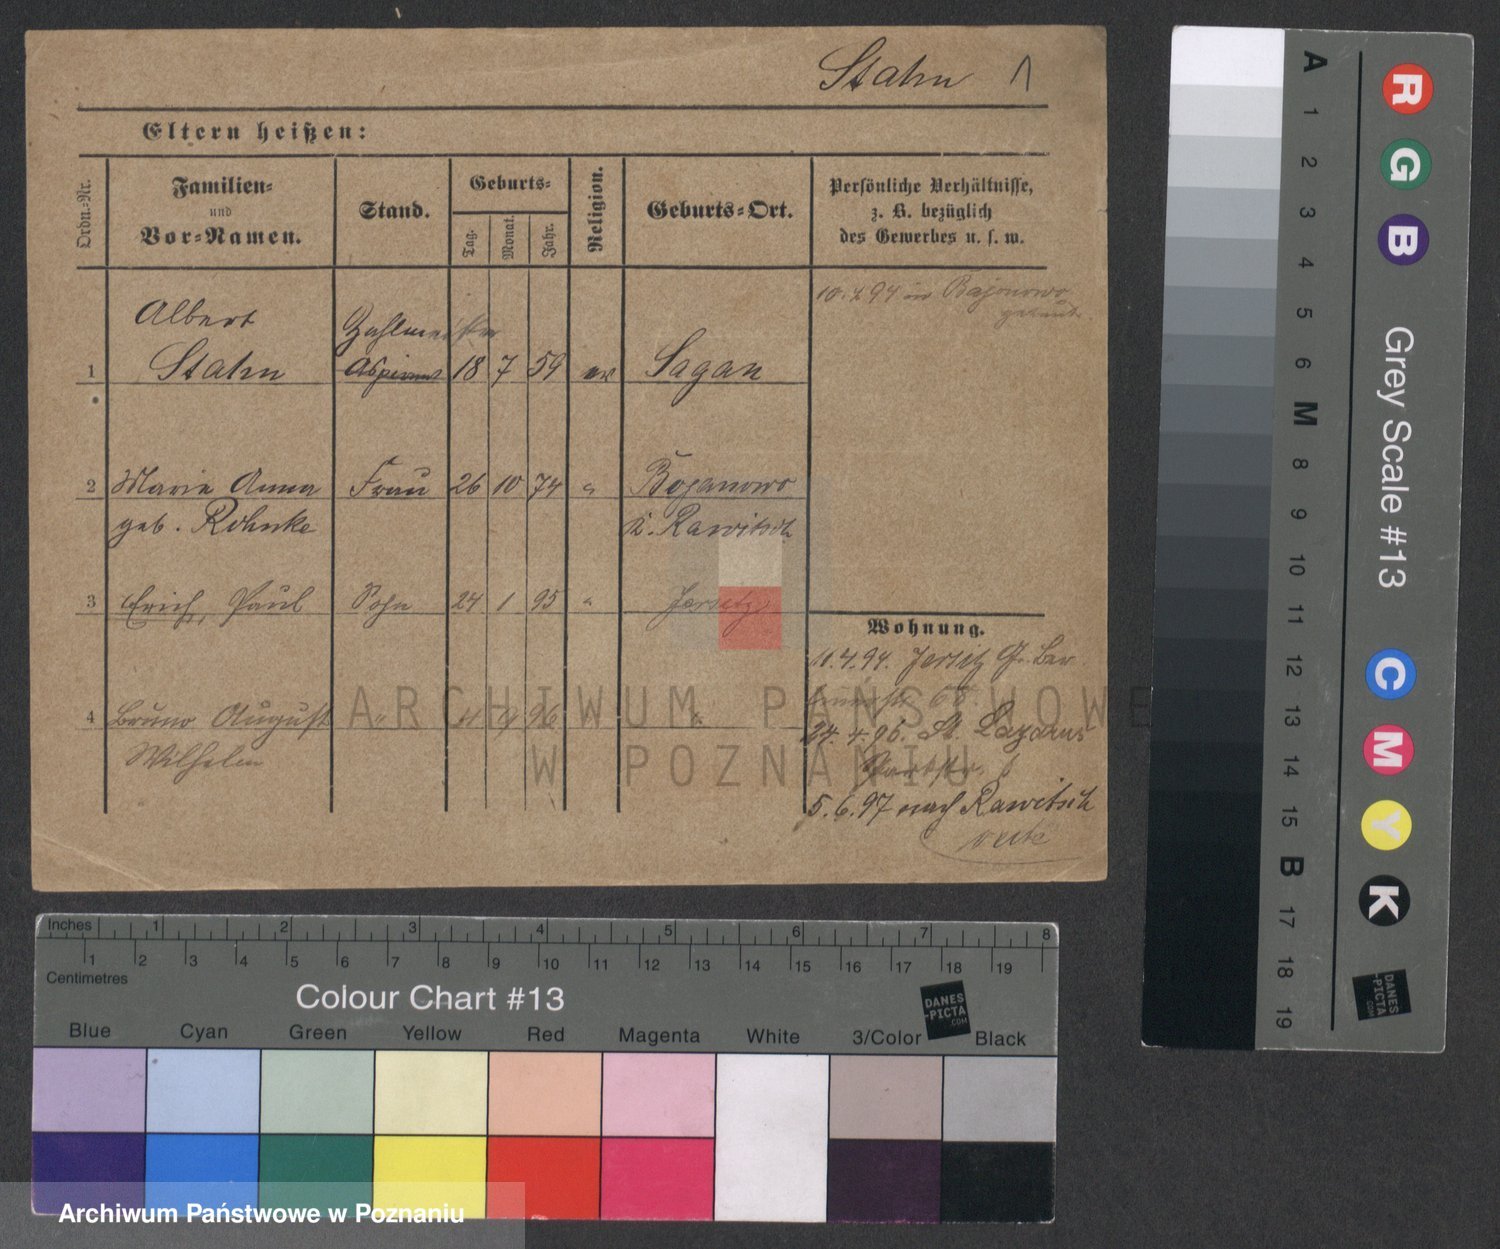 Stahn
Eltern heißen:
Ordn.-Nr.
Familien-
und
Vor-Namen.
Stand.
Geburts-
Tag.
Monat.
Jahr.
Religion.
Geburts-Ort.
Persönliche Verhältnisse,
z. B. bezüglich
des Gewerbes u. s. w.
10.4.94 in Bojanowo
getraut.
Albert
Zahlmeister
1 Stahn Aspirant 18 7 59 ev Sagan
2 Marie Anna Frau 26 10 74 " Bojanowo
geb. Rohnke b. Rawitsch
3 Erich, Paul Sohn 24 1 95 " Jersitz
Wohnung.
11.4.94. Jersitz Gr. Ber
4 Bruno August " 11 9 96 "
Wilhelm
24.4.96. St. Lazarus
Parkstr.
5.6.97 nach Rawitsch
ARCHIWUM PAŃSTWOWE
W POZNANIU
Inches 1 2 3 4 5 6 7 8
1 2 3 4 5 6 7 8 9 10 11 12 13 14 15 16 17 18 19
Centimetres
Colour Chart #13
DANES
-PICTA
.COM
Blue Cyan Green Yellow Red Magenta White 3/Color Black
Archiwum Państwowe w Poznaniu
R G B
Grey Scale #13
C M Y K
DANES
-PICTA
.COM
A 1 2 3 4 5 6 M 8 9 10 11 12 13 14 15 B 17 18 19